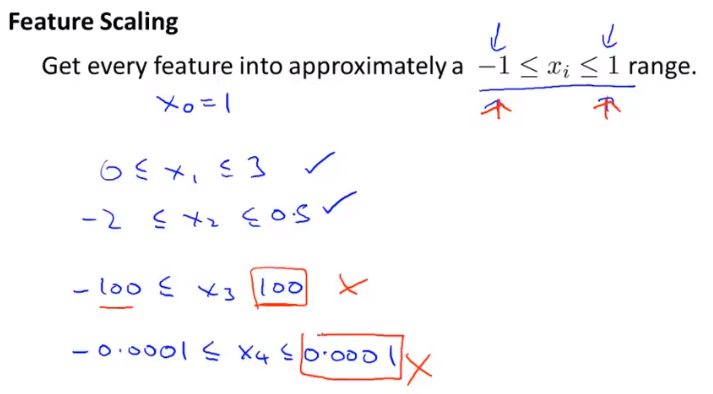 Feature Scaling
Get every feature into approximately a −1 ≤ xᵢ ≤ 1 range.
x₀ = 1
0 ≤ x₁ ≤ 3 ✓
-2 ≤ x₂ ≤ 0.5 ✓
-100 ≤ x₃ 100 ×
-0.0001 ≤ x₄ ≤ 0.0001 ×